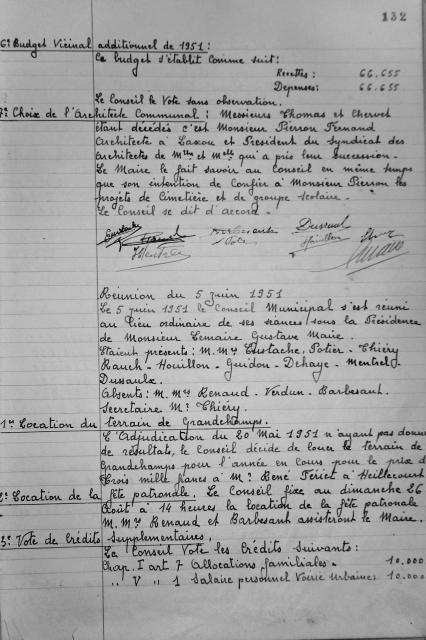 132
6º Budget Vicinal additionnel de 1951 :
Ce budget s'établit comme suit :
Recettes : 66.655
Dépenses : 66.655
Le Conseil le Vote sans observation.
7º Choix de l'Architecte Communal : Messieurs Thomas et Chervet
étant décédés c'est Monsieur Pierron Fernand
Architecte à Laxou et Président du Syndicat des
Architectes de Mthe et Mlle qui a pris leur succession -
Le Maire le fait savoir au Conseil en même temps
que son intention de Confier à Monsieur Pierron les
projets de Cimetière et de groupe scolaire.
Le Conseil se dit d'accord -
Eustache
Barbesant
Dussaulx
Houillon
Réunion du 5 Juin 1951
Le 5 juin 1951 le Conseil Municipal s'est réuni
au lieu ordinaire de ses séances sous la Présidence
de Monsieur Lemaire Gustave Maire.
Etaient présents : M. Mrs Eustache, Potier - Thiéry
Rauch - Houillon - Guidon - Dehaye - Mentrel -
Dussaulx.
Absents : M. Mrs Renaud - Verdun - Barbesant.
Secrétaire Mr Thiéry.
1º Location du terrain de Grandchamps.
L'Adjudication du 20 Mai 1951 n'ayant pas donné
de résultats, le Conseil décide de louer le terrain de
Grandchamps pour l'année en cours pour le prix de
Trois mille francs à Mr René Fériet à Heillecourt
2º Location de la fête patronale. Le Conseil fixe au dimanche 26
Août à 14 heures la location de la fête patronale
M. Mrs Renaud et Barbesant assisteront le Maire.
3º Vote de Crédits Supplémentaires.
Le Conseil Vote les Crédits Suivants :
Chap. I art 7 Allocations familiales - 10.000
" V " 1 Salaire personnel Voirie Urbaine : 10.000